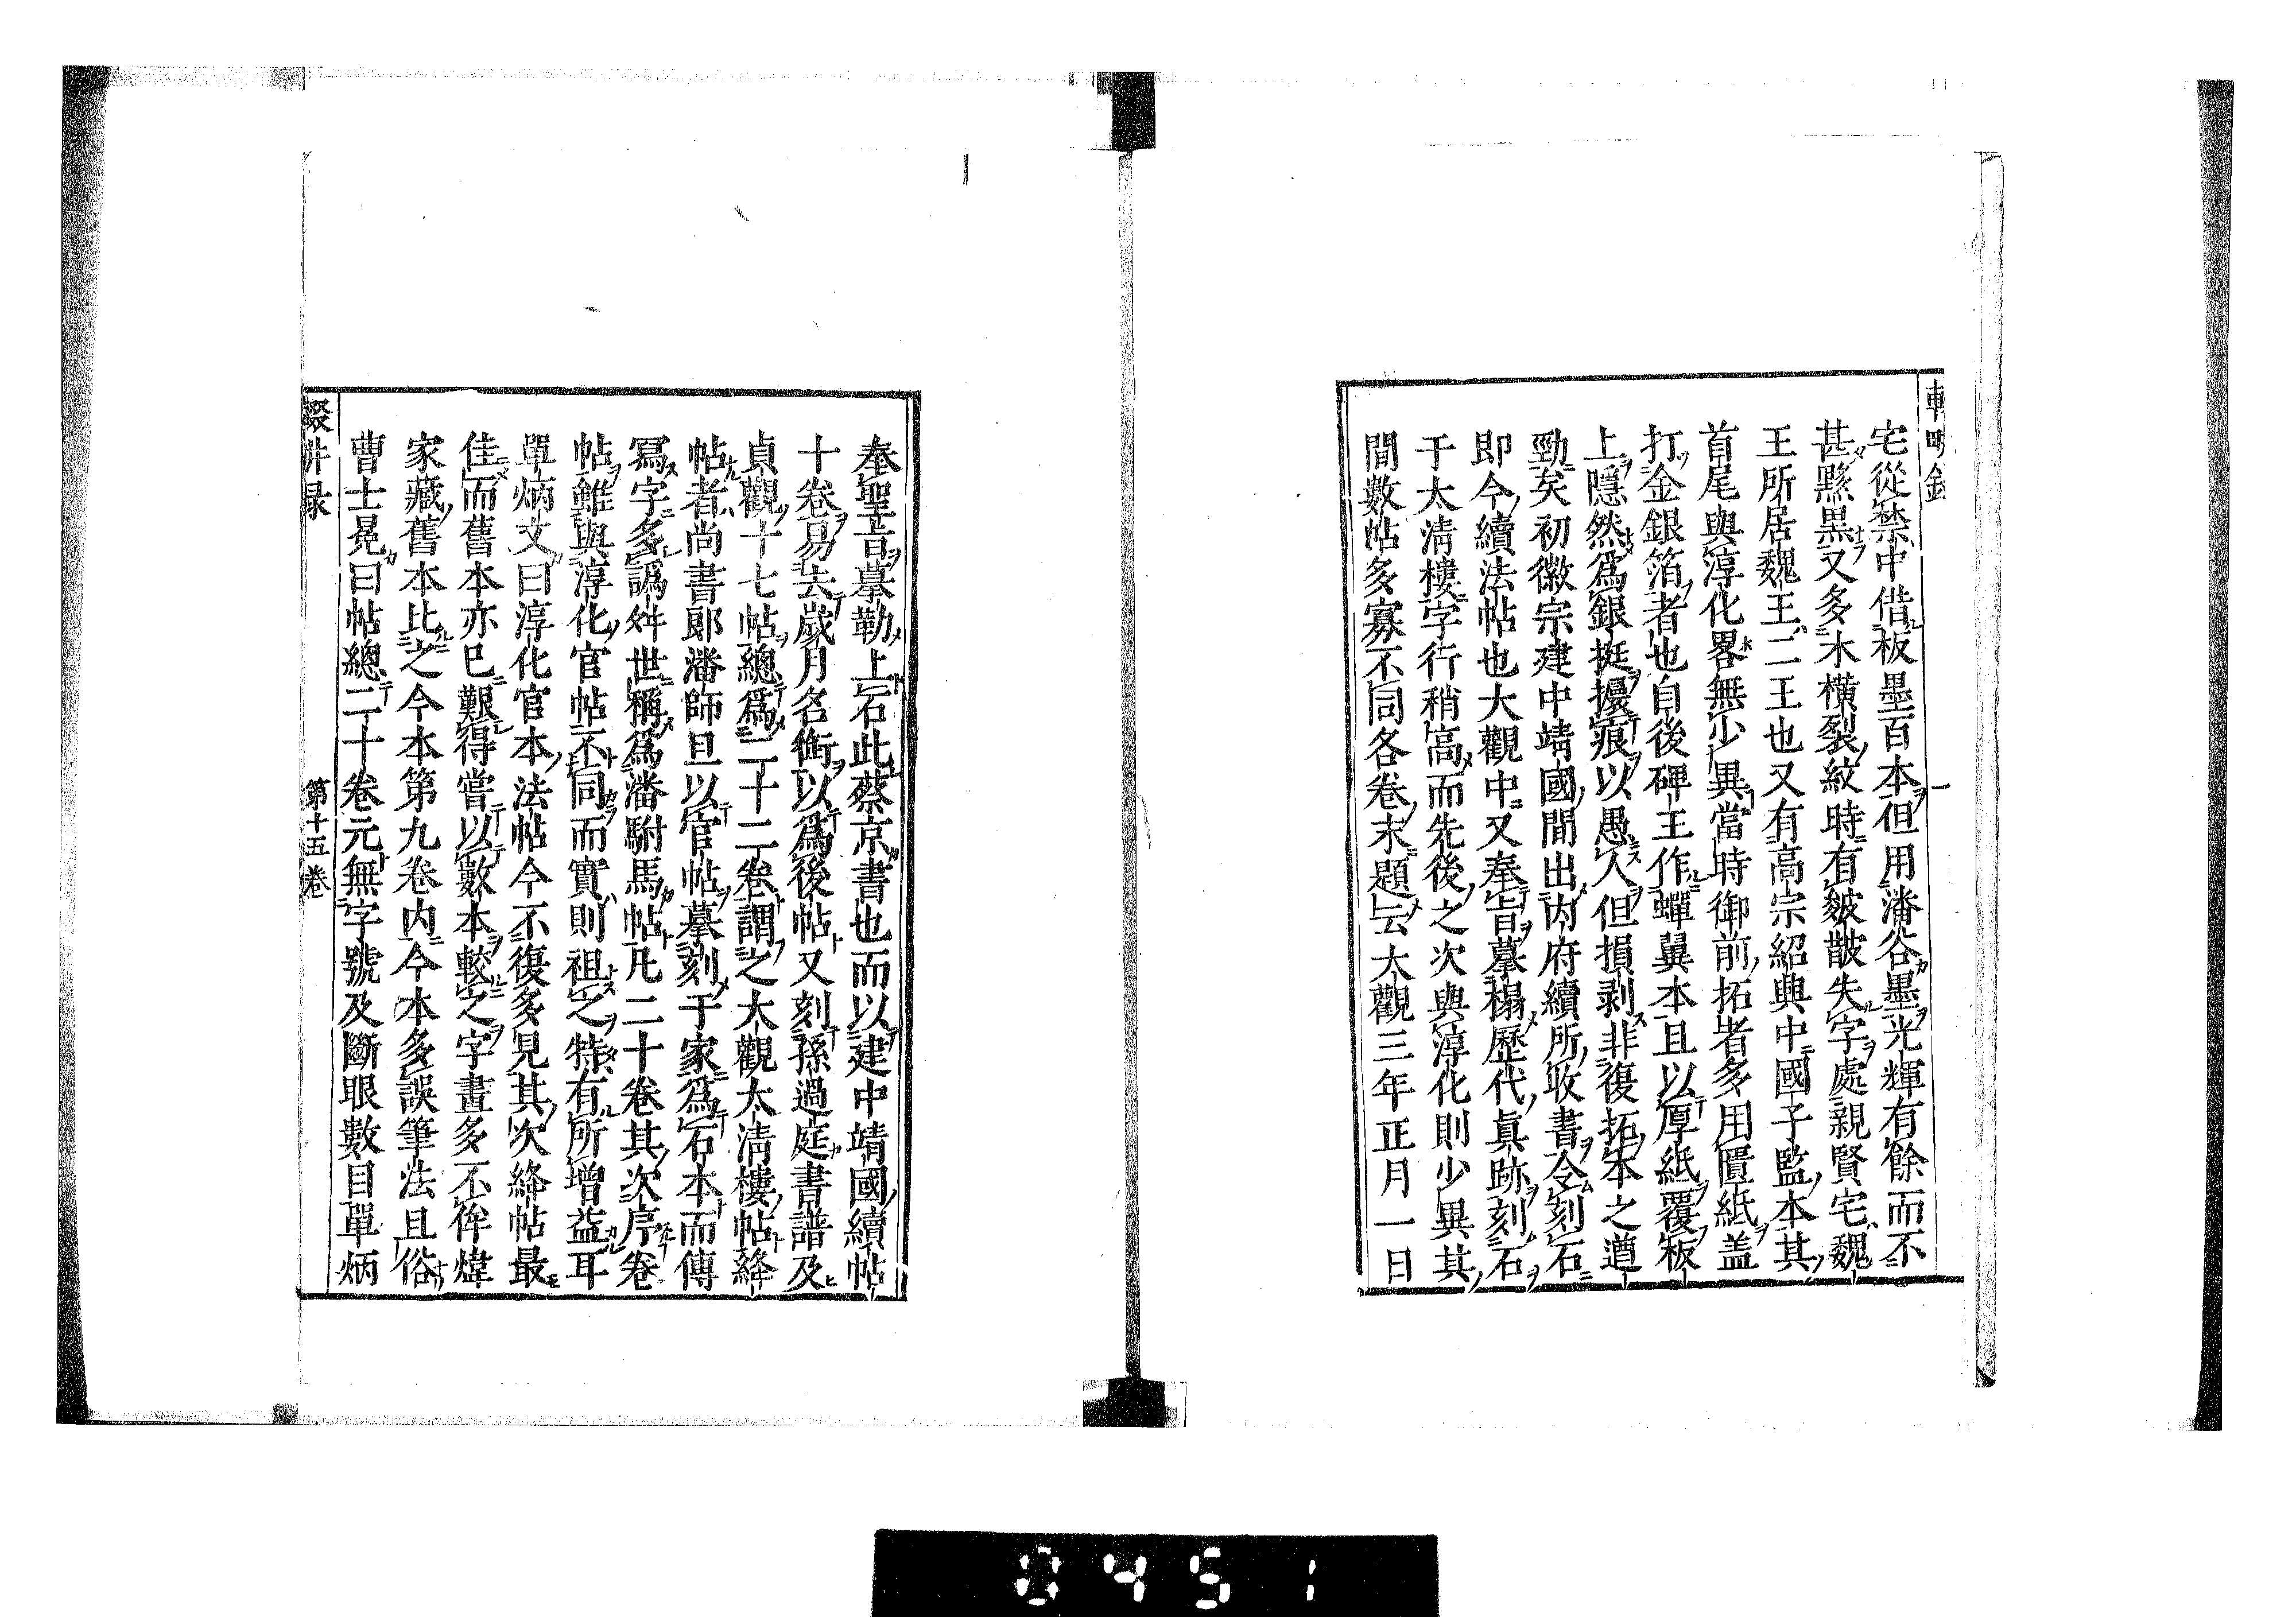 宅從禁中借板墨百本但用潘谷墨光輝有餘而不
甚黟黒又多木橫裂紋時有皴皵失字處親賢宅魏
王所居魏王二王也又有高宗紹興中國子監本其
首尾與淳化畧無少異當時御前拓者多用匱紙盖
打金銀箔者也自後碑王作蟬翼本且以厚紙覆板
上隱然爲銀挺擾痕以愚人但損剥非復拓本之遒
勁矣初徽宗建中靖國間出内府續所收書令刻石
即今續法帖也大觀中又奉旨摹榻歷代眞跡刻石
于太淸樓字行稍高而先後之次與淳化則少異其
間數帖多寡不同各卷末題云大觀三年正月一日
奉聖旨摹勒上石此蔡京書也而以建中靖國續帖
十卷易去歲月名銜以爲後帖又刻孫過庭書譜及
貞觀十七帖總爲二十二卷謂之大觀太淸樓帖絳
帖者尚書郞潘師旦以官帖摹刻于家爲石本而傳
冩字多譌舛世稱爲潘駙馬帖凡二十卷其次序卷
帖雖與淳化官帖不同而實則祖之特有所增益耳
單炳文曰淳化官本法帖今不復多見其次絳帖最
佳而舊本亦已艱得嘗以數本較之字畫多不侔煒
家藏舊本比之今本第九卷内今本多誤筆法且俗
曹士冕曰帖總二十卷元無字號及斷眼數目單炳
第十五卷
0451